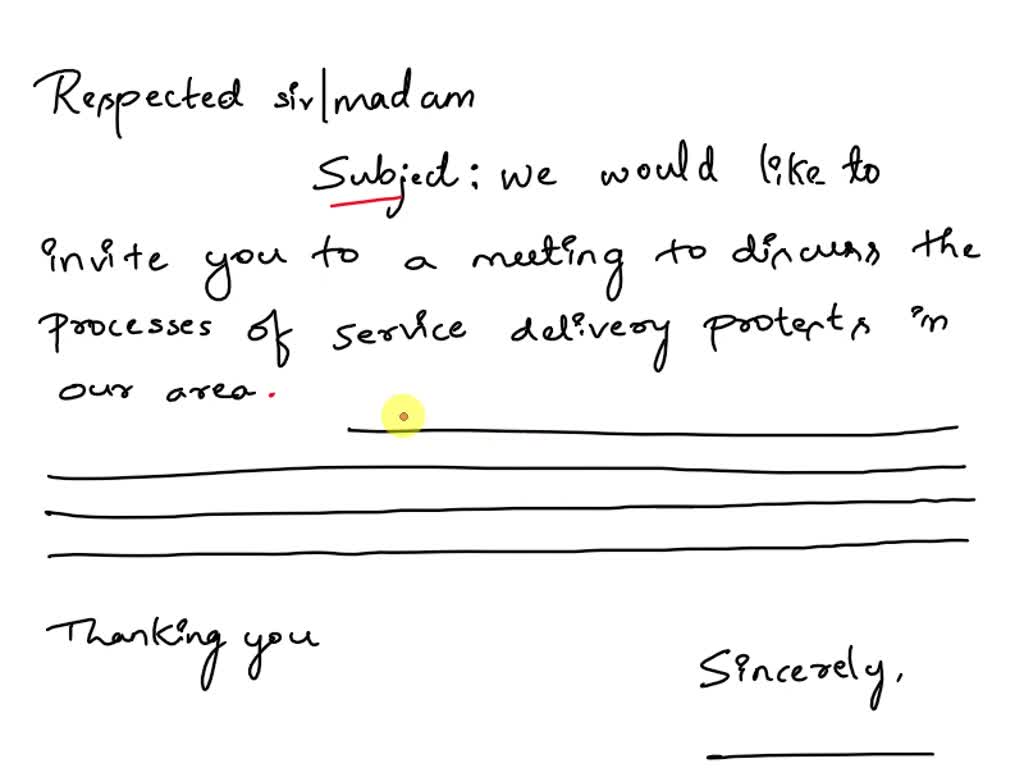 Respected sir/madam
Subject: we would like to
invite you to a meeting to discuss the
processes of service delivery protests in
our area.
Thanking you
Sincerely,